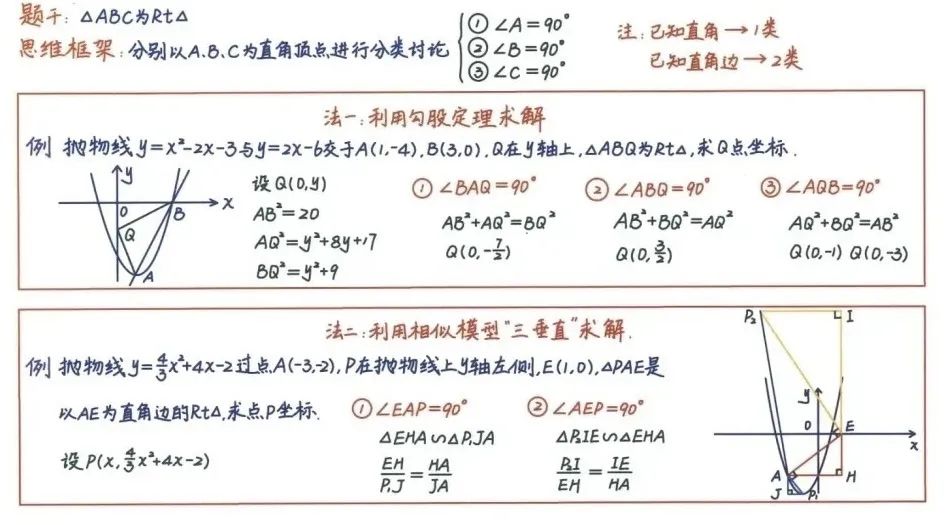 题干：△ABC为Rt△
思维框架：分别以A.B.C为直角顶点进行分类讨论
① ∠A=90°
② ∠B=90°
③ ∠C=90°
注：已知直角→1类
已知直角边→2类
法一：利用勾股定理求解
例 抛物线y=x²-2x-3与y=2x-6交于A(1,-4),B(3,0),Q在y轴上,△ABQ为Rt△,求Q点坐标.
y
O
B
x
Q
A
设Q(0,y)
AB²=20
AQ²=y²+8y+17
BQ²=y²+9
① ∠BAQ=90°
AB²+AQ²=BQ²
Q(0,-7/2)
② ∠ABQ=90°
AB²+BQ²=AQ²
Q(0,3/2)
③ ∠AQB=90°
AQ²+BQ²=AB²
Q(0,-1) Q(0,-3)
法二：利用相似模型"三垂直"求解.
例 抛物线y=4/3x²+4x-2过点A(-3,-2),P在抛物线上y轴左侧,E(1,0),△PAE是
以AE为直角边的Rt△,求点P坐标.
设P(x,4/3x²+4x-2)
① ∠EAP=90°
△EHA∽△P₁JA
EH/P₁J=HA/JA
② ∠AEP=90°
△P₂IE∽△EHA
P₂I/EH=IE/HA
P₂
I
y
O
E
x
A
H
J
P₁